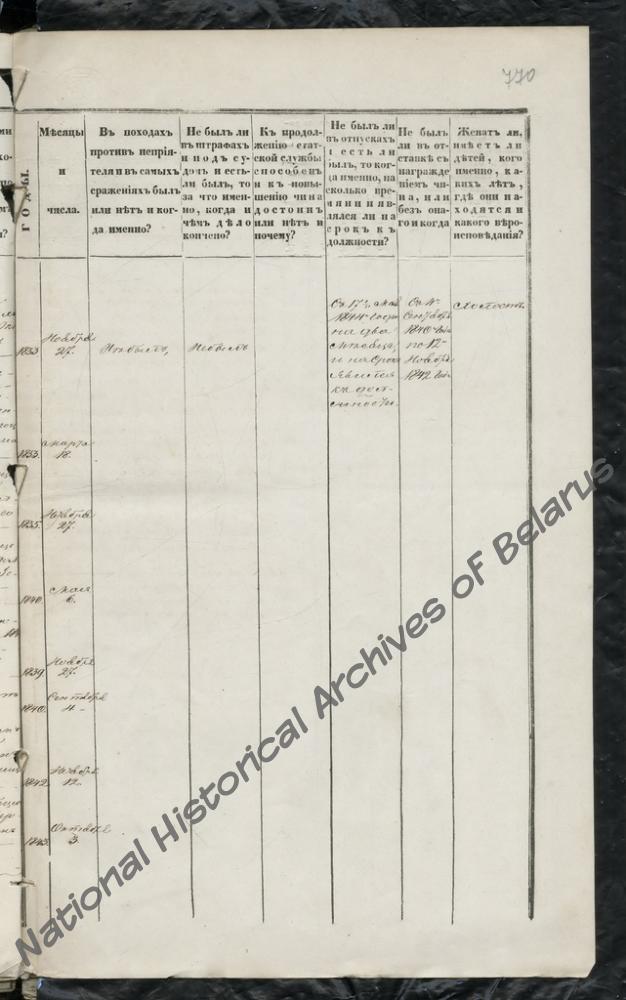 770
ГОДЫ.
Мѣсяцы
и
числа.
Въ походахъ
противъ непрія-
теля и въ самыхъ
сраженіяхъ былъ
или нѣтъ и ког-
да именно?
Не былъ ли
въ штрафахъ
и подъ су-
домъ и есть-
ли былъ, то
за что имен-
но, когда и
чѣмъ дѣло
кончено?
Къ продол-
женію стат-
ской службы
способенъ
и къ повы-
шенію чина
достоинъ
или нѣтъ и
почему?
Не былъ ли
въ отпускахъ
и есть ли
былъ, то ког-
да именно, на
сколько вре-
мяни и яв-
лялся ли на
срокъ къ
должности?
Не былъ
ли въ от-
ставкѣ съ
награжде-
ніемъ чи-
на, или
безъ она-
го и когда
Женатъ ли,
имѣетъ ли
дѣтей, кого
именно, ка-
кихъ лѣтъ,
гдѣ они на-
ходятся и
какого вѣро-
исповѣданія?
1833
Ноября
27.
Небылъ,
Небылъ
Съ 17 мая
1844 года
на два
мѣсяца,
и на срокъ
явился
къ дол-
жности.
Съ 4
Сентября
1840 года
по 12
Ноября
1842 года
Холостъ.
1833.
Марта
18.
1835.
Ноября
27.
1840.
Мая
6.
1839.
Ноября
27.
1840.
Сентября
4
1842.
Ноября
12.
1843.
Октября
3.
National Historical Archives of Belarus